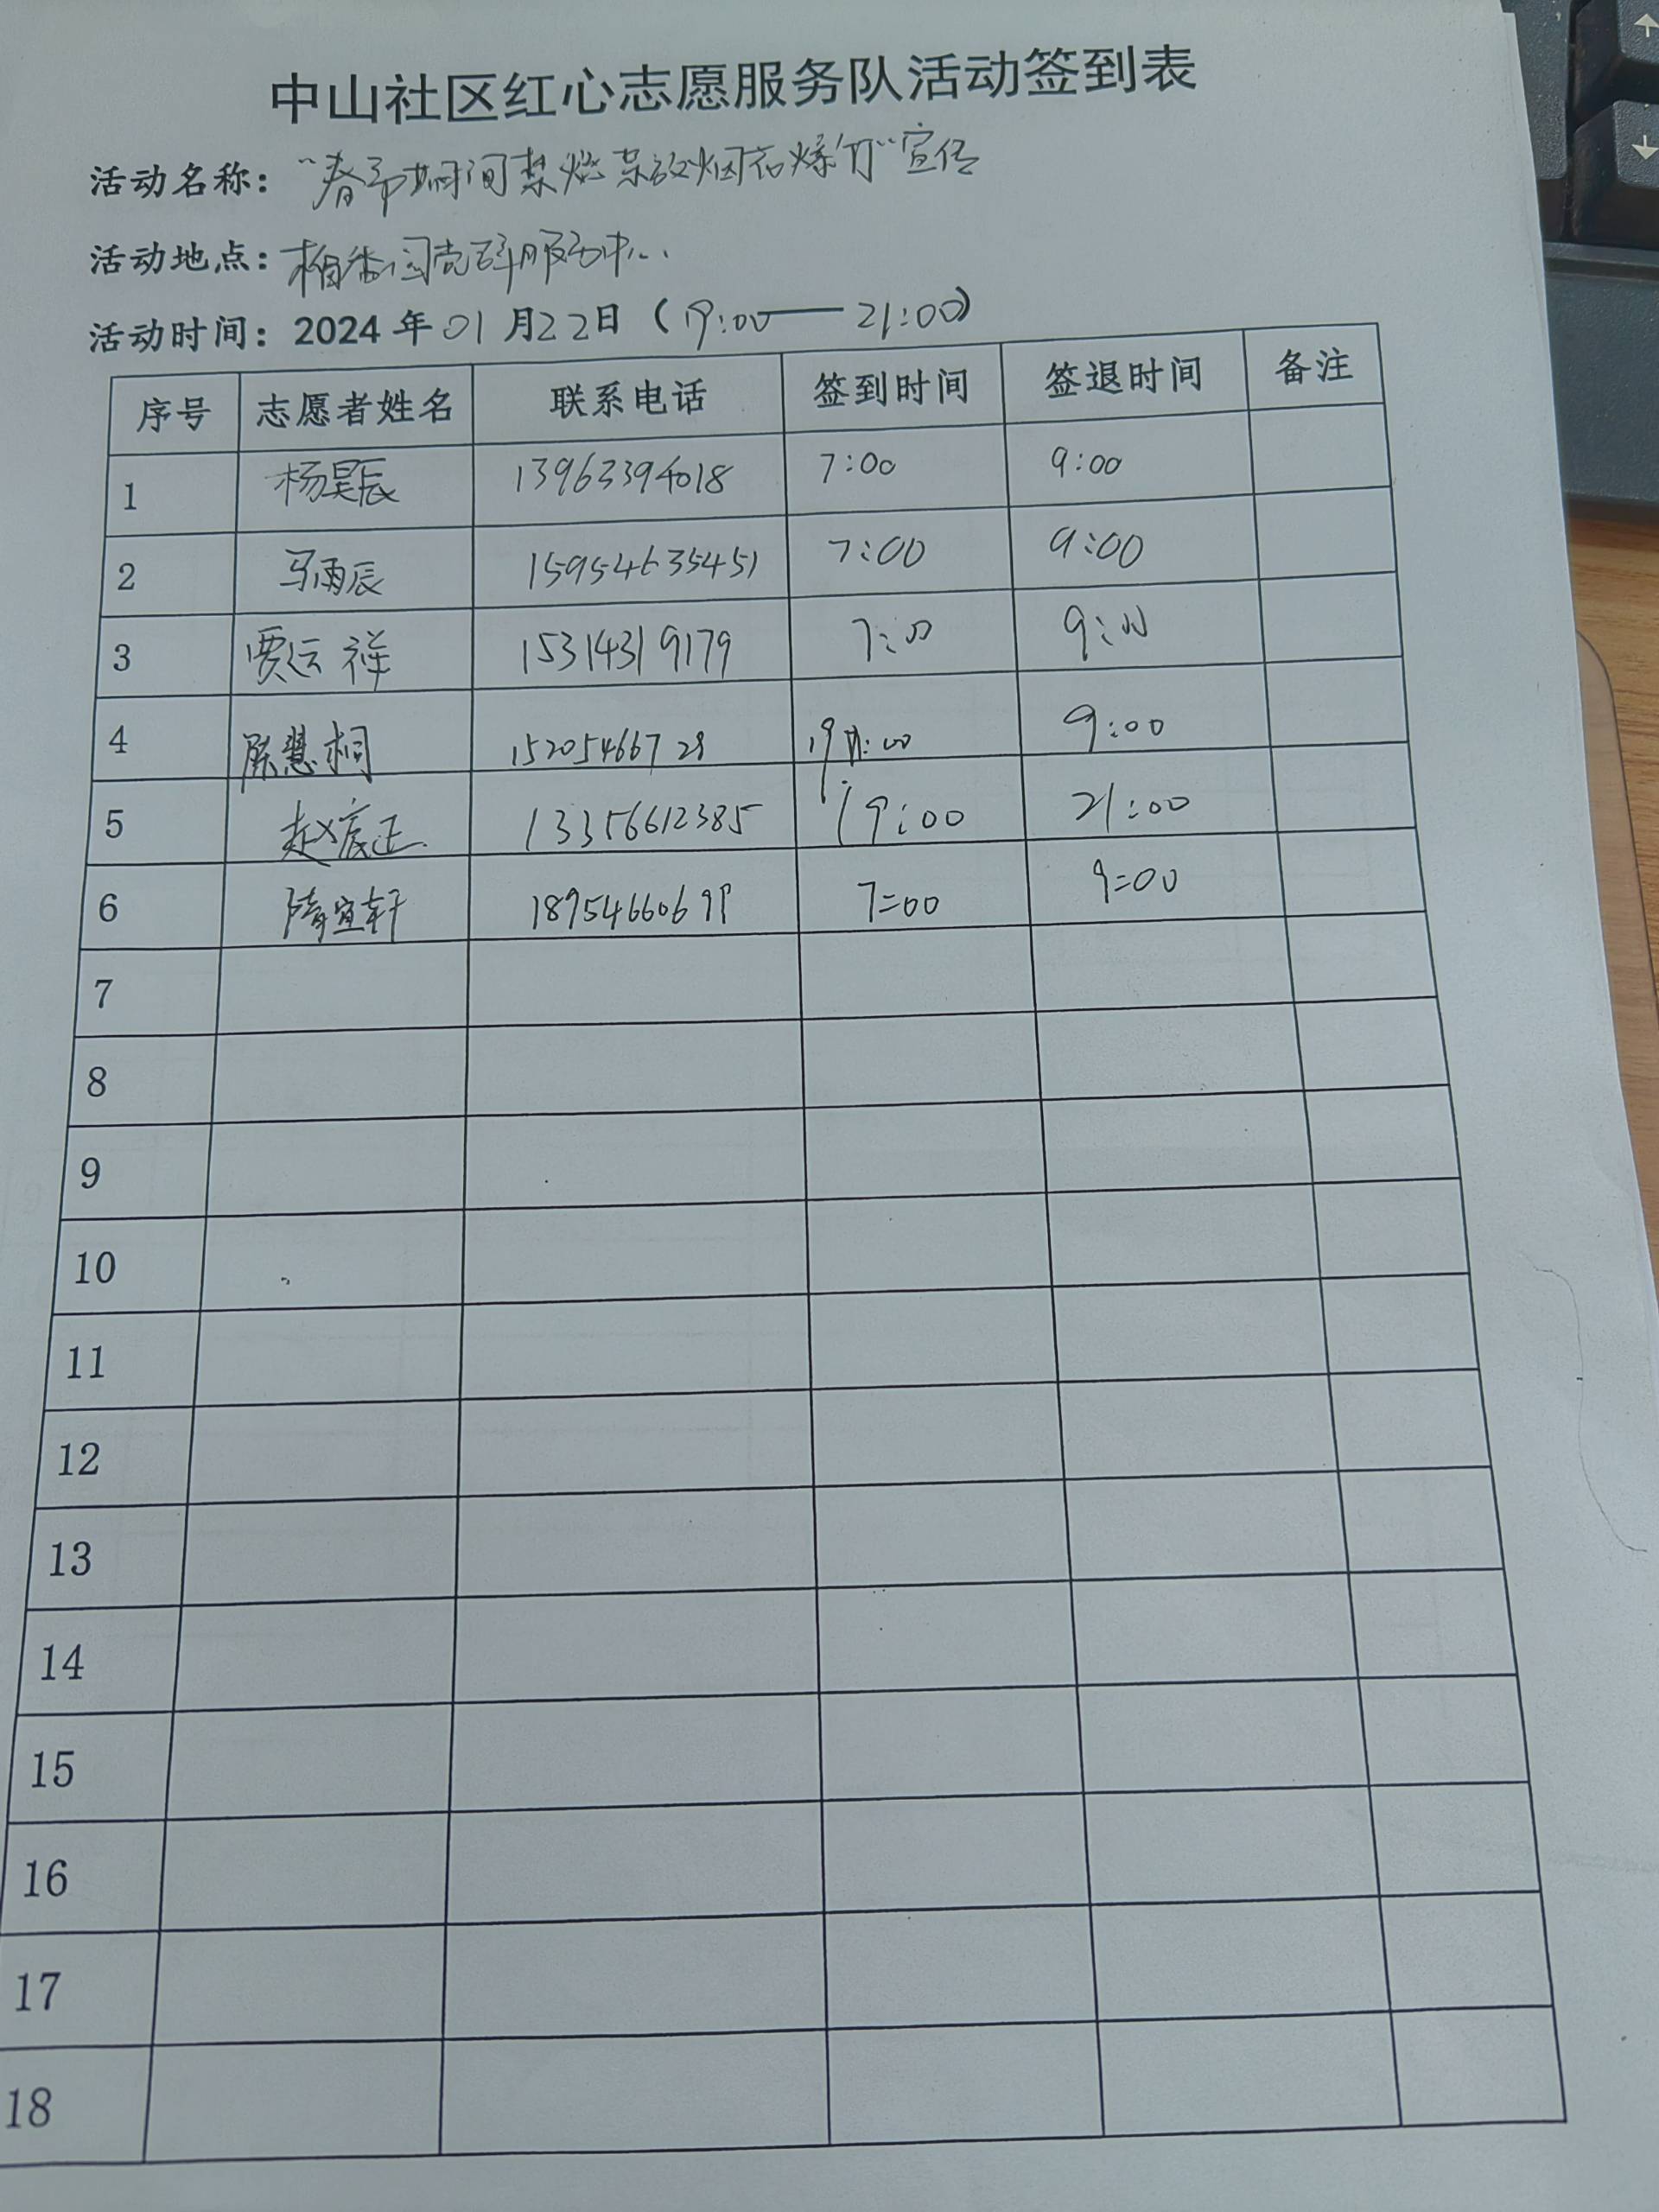 中山社区红心志愿服务队活动签到表
活动名称："春节期间禁燃禁放烟花爆竹"宣传
活动地点：柏香园党群服务中心
活动时间：2024年01月22日（19:00——21:00）
序号 志愿者姓名 联系电话 签到时间 签退时间 备注
1 杨昊辰 13963394018 7:00 9:00
2 马雨辰 15954635451 7:00 9:00
3 贾云祥 15314319179 7:00 9:00
4 慧桐 19:00 9:00
5 赵宸正 13356612385 19:00 21:00
6 隋宜轩 18954660699 7:00 9:00
7
8
9
10
11
12
13
14
15
16
17
18